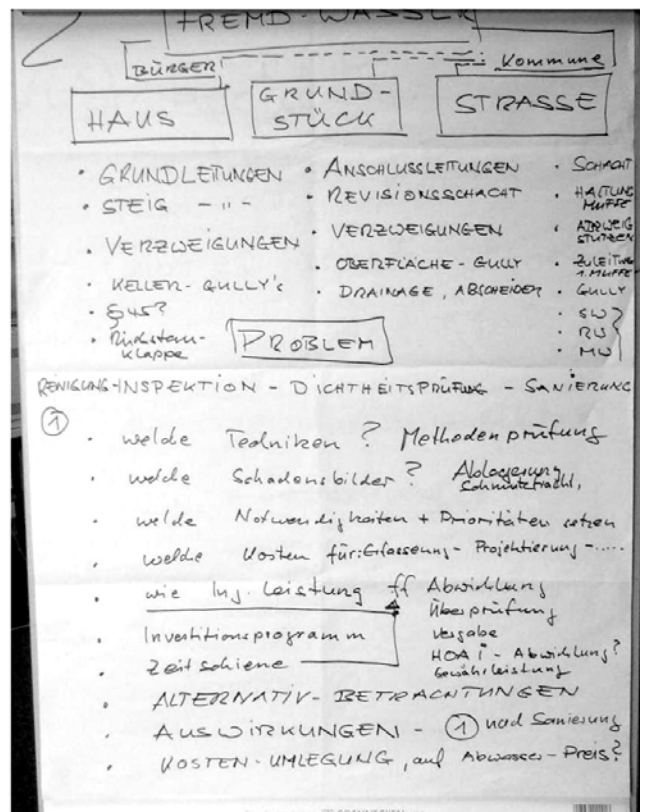 FREMD-WASSER
BÜRGER Kommune
HAUS
GRUND-
STÜCK
STRASSE
• GRUNDLEITUNGEN
• STEIG - " -
• VERZWEIGUNGEN
• KELLER-GULLY'S
• §45?
• Rückstau-
klappe
• ANSCHLUSSLEITUNGEN
• REVISIONSSCHACHT
• VERZWEIGUNGEN
• OBERFLÄCHE-GULLY
• DRAINAGE, ABSCHEIDER
• SCHACHT
• HALTUNG
MUFFE
• ABZWEIG
STUTZEN
• ZULEITUNG
1. MUFFE
• GULLY
• SW
• RW
• MW
PROBLEM
REINIGUNG-INSPEKTION - DICHTHEITSPRÜFUNG - SANIERUNG
①
• welche Techniken? Methodenprüfung
• welche Schadensbilder? Ablagerung
Schmutzfracht,
• welche Notwendigkeiten + Prioritäten setzen
• welche Kosten für: Erfassung - Projektierung - .....
• wie Ing. Leistung ff Abwicklung
Überprüfung
Vergabe
HOAI - Abwicklung?
Gewährleistung
• Investitionsprogramm
• Zeitschiene
• ALTERNATIV-BETRACHTUNGEN
• AUSWIRKUNGEN - ① nach Sanierung
• KOSTEN-UMLEGUNG, auf Abwasser-Preis?